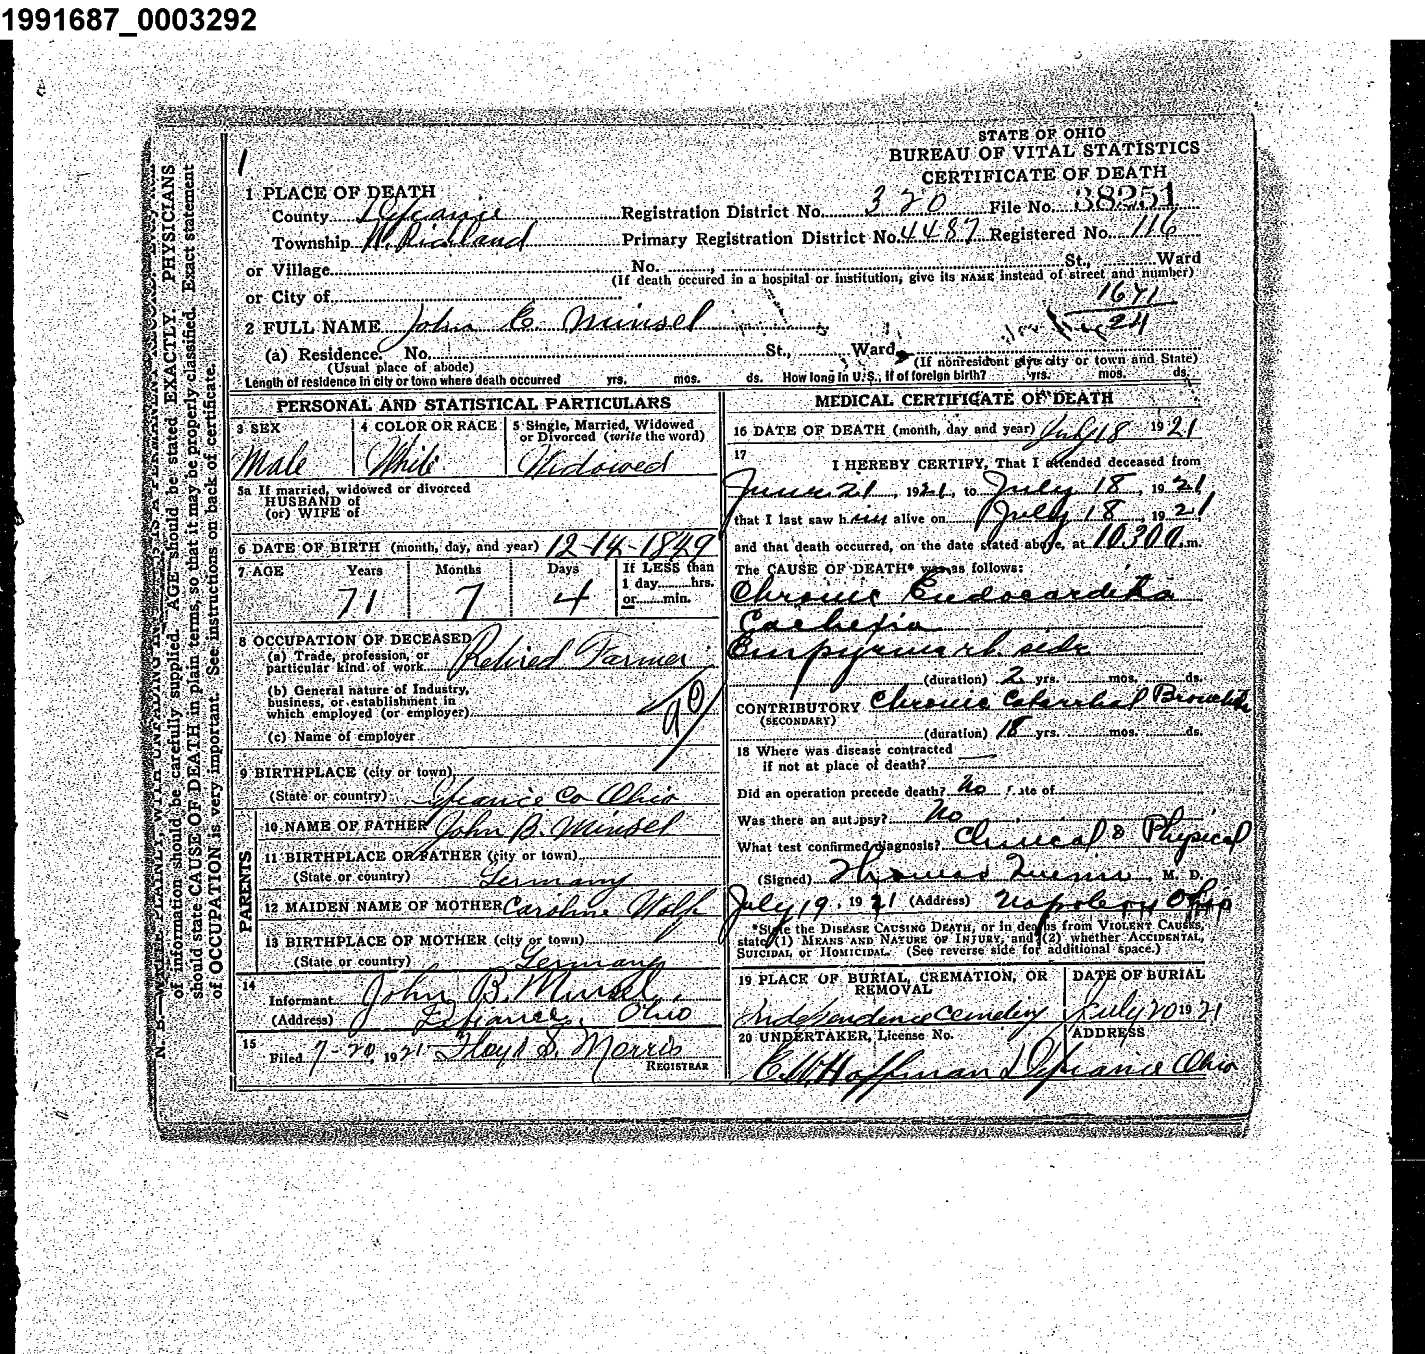 1991687_0003292
STATE OF OHIO
BUREAU OF VITAL STATISTICS
CERTIFICATE OF DEATH
1
1 PLACE OF DEATH
County Defiance Registration District No. 320 File No. 38251
Township N. Richland Primary Registration District No. 4487 Registered No. 116
or Village No. , St., Ward
(If death occured in a hospital or institution, give its NAME instead of street and number)
or City of
1671
2 FULL NAME John C. Minsel
24
(a) Residence. No. St., Ward
(Usual place of abode) (If nonresident give city or town and State)
Length of residence in city or town where death occurred yrs. mos. ds. How long in U.S., if of foreign birth? yrs. mos. ds.
PERSONAL AND STATISTICAL PARTICULARS
3 SEX 4 COLOR OR RACE 5 Single, Married, Widowed
or Divorced (write the word)
Male White Widowed
5a If married, widowed or divorced
HUSBAND of
(or) WIFE of
6 DATE OF BIRTH (month, day, and year) 12-14-1849
7 AGE Years Months Days If LESS than
1 day hrs.
or min.
71 7 4
8 OCCUPATION OF DECEASED
(a) Trade, profession, or
particular kind of work Retired Farmer
(b) General nature of Industry,
business, or establishment in
which employed (or employer)
90
(c) Name of employer
9 BIRTHPLACE (city or town)
(State or country) Defiance Co Ohio
PARENTS
10 NAME OF FATHER John B. Minsel
11 BIRTHPLACE OF FATHER (city or town)
(State or country) Germany
12 MAIDEN NAME OF MOTHER Caroline Wolf
13 BIRTHPLACE OF MOTHER (city or town)
(State or country) Germany
14
Informant John B. Minsel,
(Address) Defiance, Ohio
15
Filed 7-20, 1921 Floyd S. Morris
REGISTRAR
MEDICAL CERTIFICATE OF DEATH
16 DATE OF DEATH (month, day and year) July 18 1921
17
I HEREBY CERTIFY, That I attended deceased from
June 21, 1921, to July 18, 1921
that I last saw him alive on July 18, 1921
and that death occurred, on the date stated above, at 1030a.m.
The CAUSE OF DEATH* was as follows:
Chronic Endocarditis
Cachexia
Empyema rt. side
(duration) 2 yrs. mos. ds.
CONTRIBUTORY Chronic Catarrhal Bronchitis
(SECONDARY)
(duration) 18 yrs. mos. ds.
18 Where was disease contracted
if not at place of death?
Did an operation precede death? No Date of
Was there an autopsy? No
What test confirmed diagnosis? Clinical & Physical
(Signed) Thomas M. D.
July 19, 1921 (Address) Napoleon Ohio
*State the DISEASE CAUSING DEATH, or in deaths from VIOLENT CAUSES,
state (1) MEANS AND NATURE OF INJURY, and (2) whether ACCIDENTAL,
SUICIDAL or HOMICIDAL. (See reverse side for additional space.)
19 PLACE OF BURIAL, CREMATION, OR
REMOVAL
DATE OF BURIAL
Independence Cemetery July 20 1921
20 UNDERTAKER, License No. ADDRESS
E. W. Hoffman Defiance Ohio
of information should be carefully supplied. AGE should be stated EXACTLY. PHYSICIANS
should state CAUSE OF DEATH in plain terms, so that it may be properly classified. Exact statement
of OCCUPATION is very important. See instructions on back of certificate.